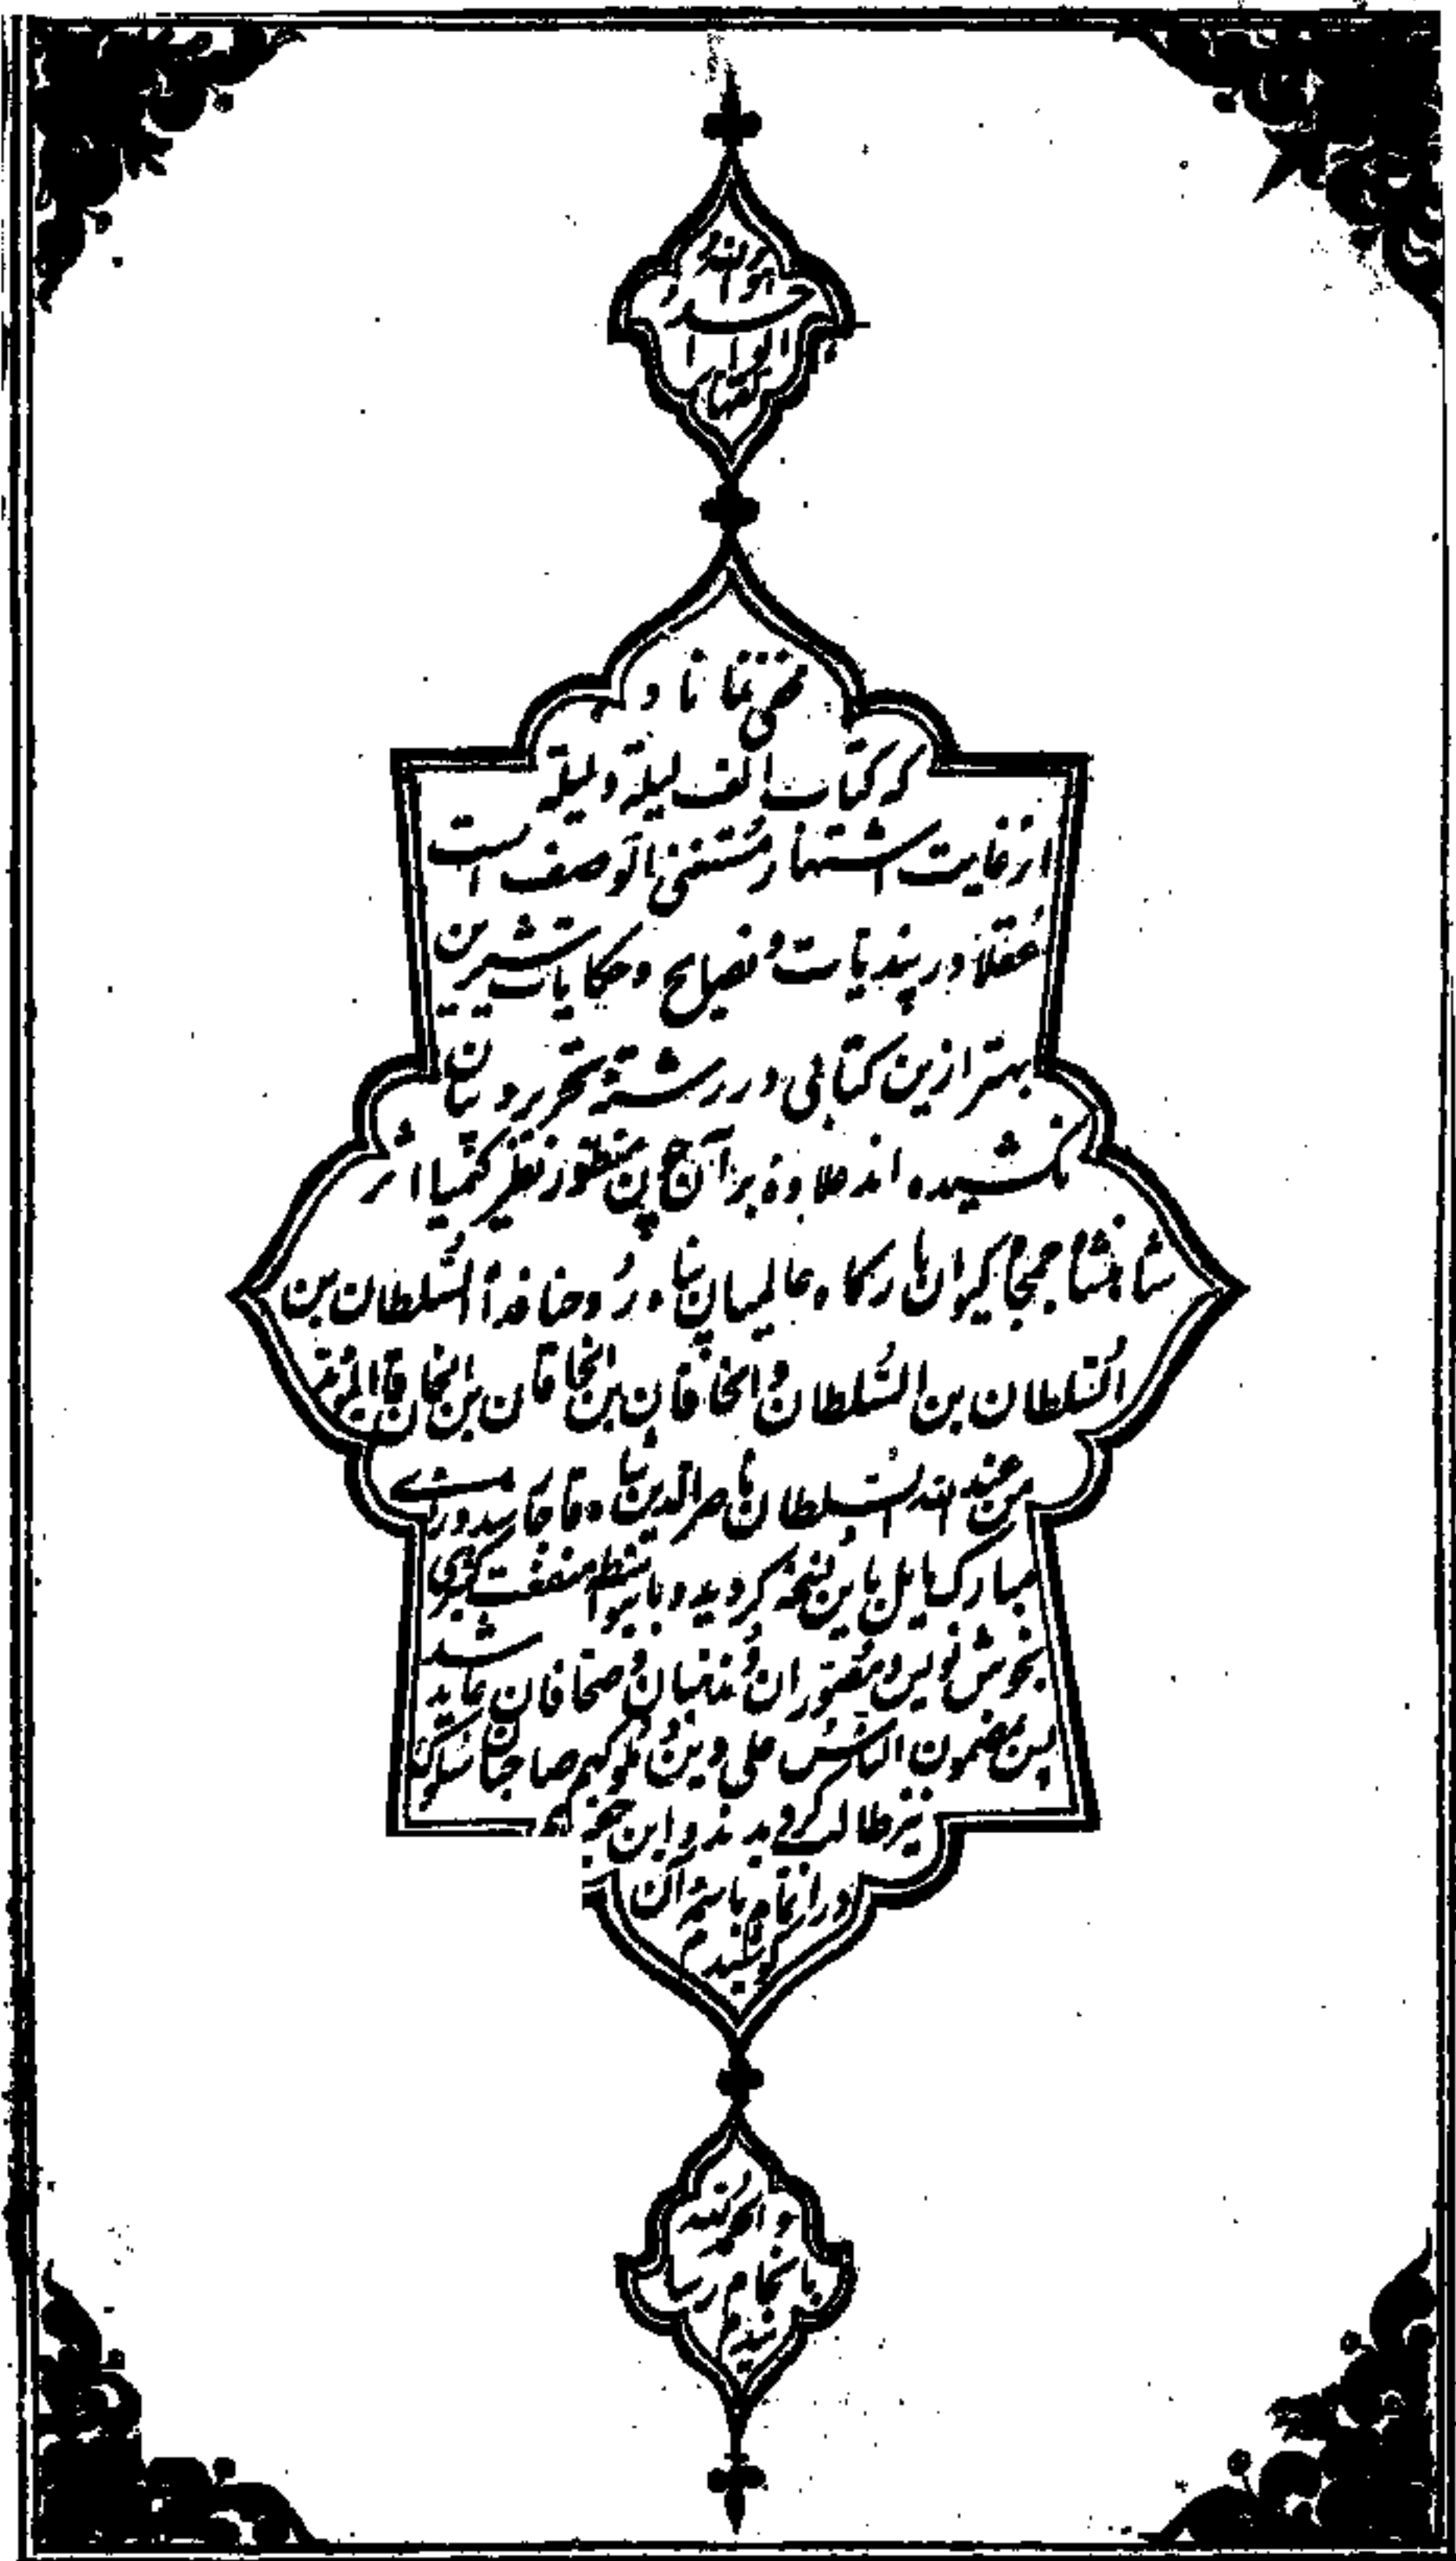 هو الله
الواحد
القهار
مخفی نماناد
که کتاب الف لیلة و لیلة
از غایت اشتهار مستغنی از توصیف است
عقلا در پندیات و نصایح و حکایات شیرین
بهتر ازین کتابی در رشته تحریر و بیان
نکشیده اند علاوه بر آن چون منظور نظر کیمیا اثر
شاهنشاه جمجاه کیوان بارگاه عالمیان پناه روحنا فداه السلطان بن
السلطان بن السلطان و الخاقان بن الخاقان بن الخاقان المؤید
من عند الله السلطان ناصرالدین شاه قاجار شد و رای
مبارک مایل باین نسخه گردید و باینواسطه منفعت کلی
بخوش نویس و مصوران و مذهبان و صحافان عاید شد
پس بمضمون الناس علی دین ملوکهم صاحبان سلوک
نیز طالب گردیدند و این حقیر
در اتمام باسمه آن
کوشیدم
بانجام رسا
نیدم